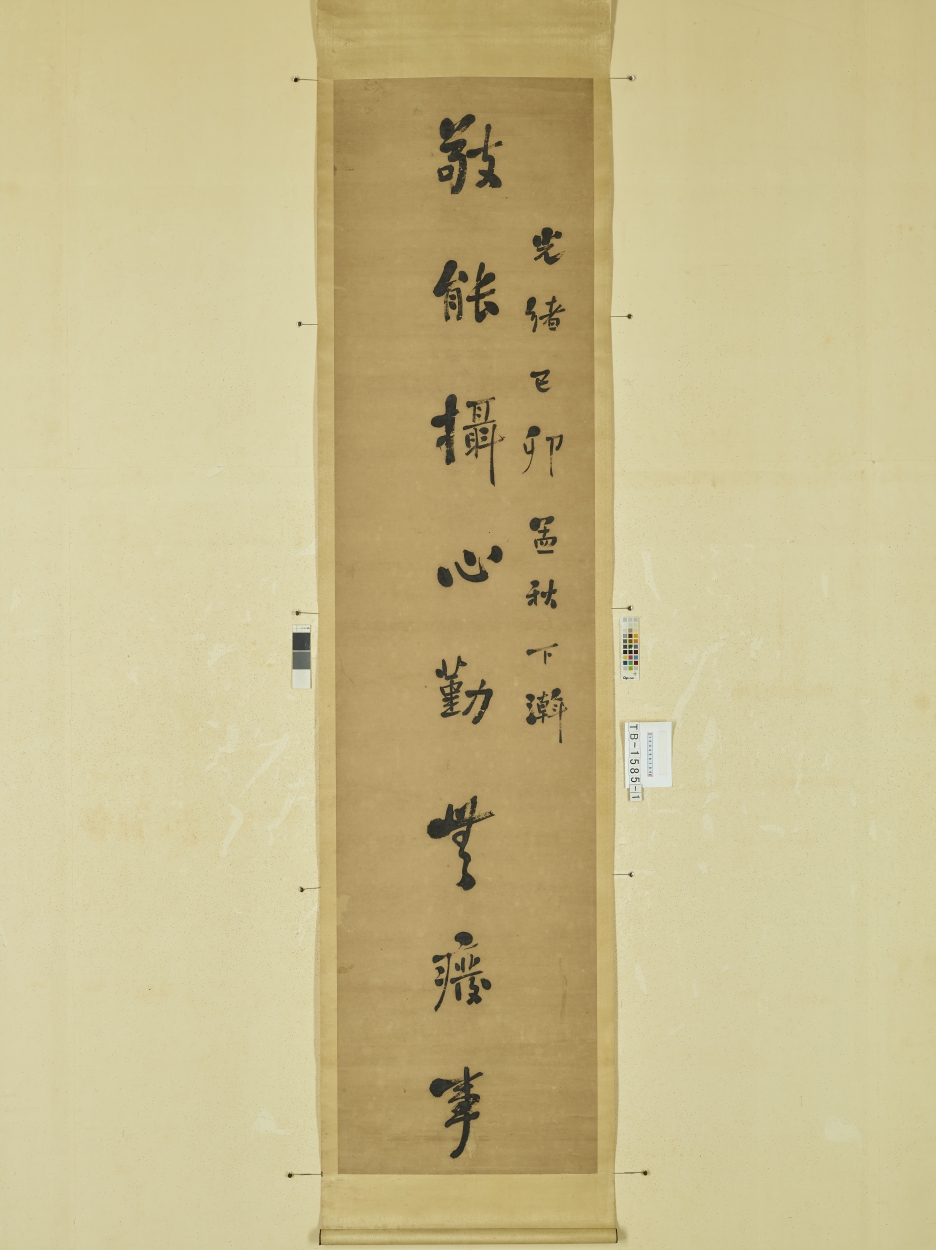 光緒己卯孟秋下澣
敬能攝心勤無癈事
TB-1585-1